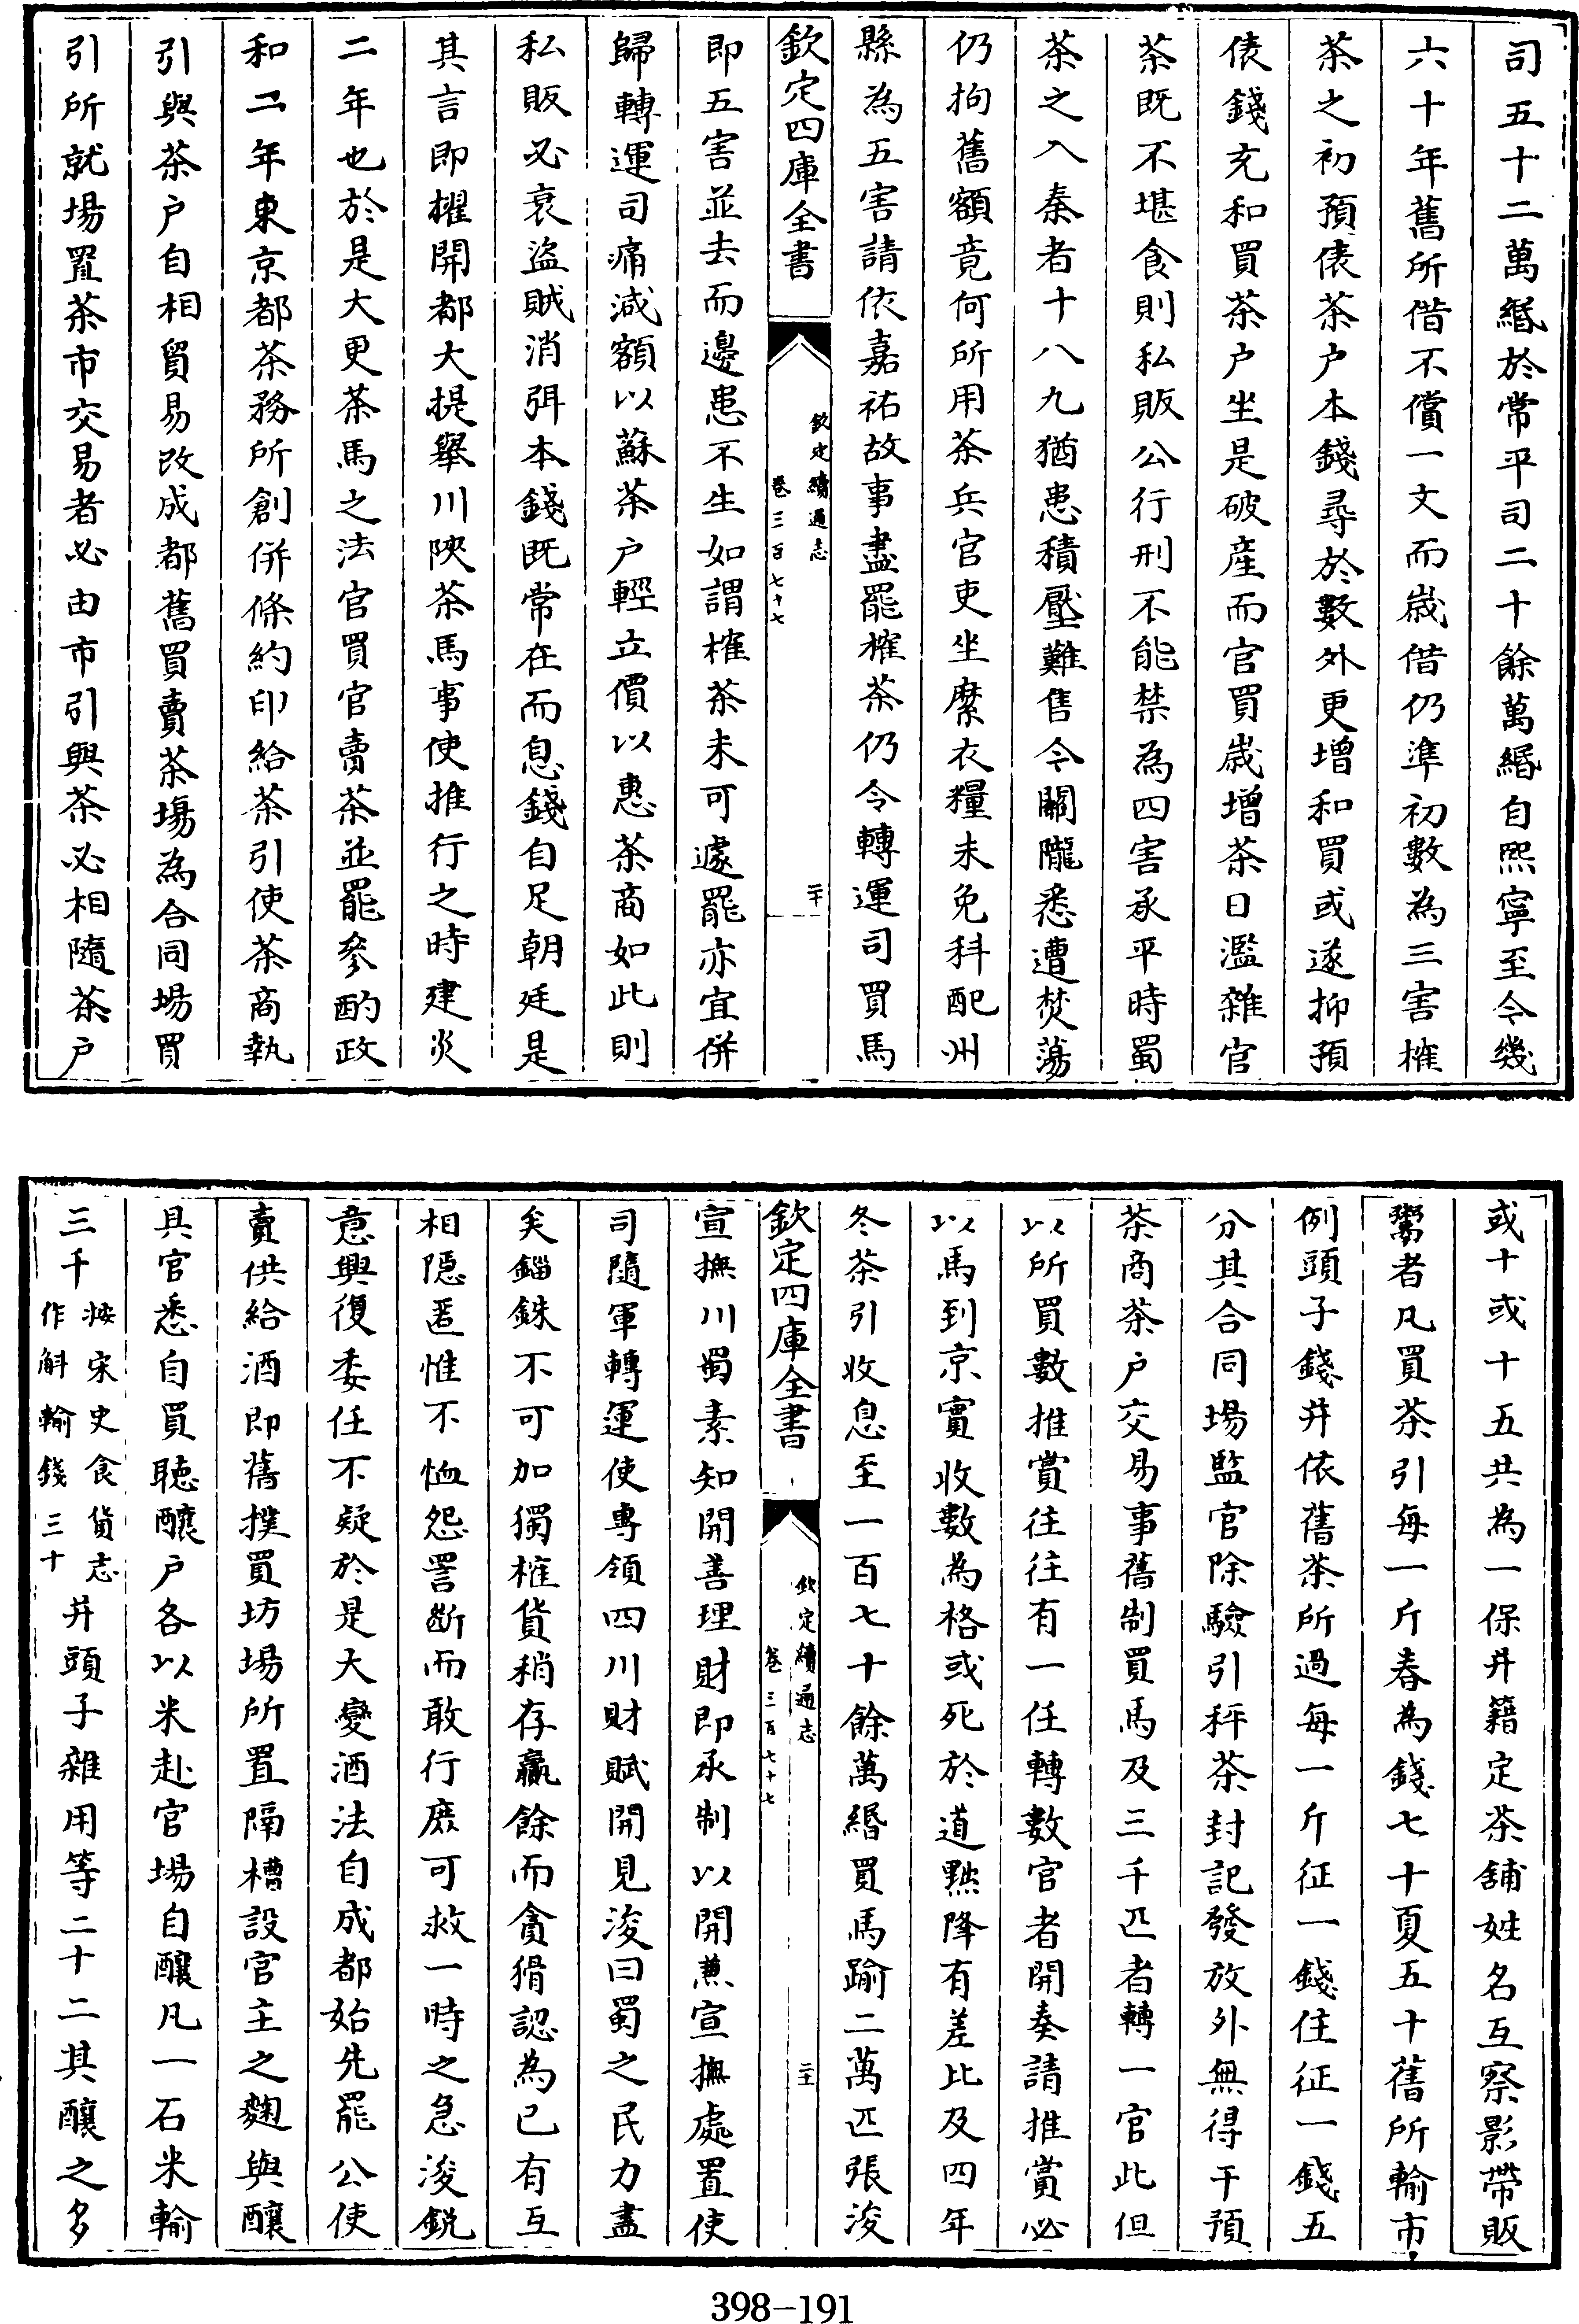 司五十二萬緡於常平司二十餘萬緡自熙寧至今幾
六十年舊所借不償一文而歳借仍準初數為三害榷
茶之初預俵茶户本錢尋於數外更增和買或遂抑預
俵錢充和買茶户坐是破産而官買歳增茶日濫雜官
茶既不堪食則私販公行刑不能禁為四害承平時蜀
茶之入秦者十八九猶患積壓難售今關隴悉遭焚蕩
仍拘舊額竟何所用茶兵官吏坐縻衣糧未免科配州
縣為五害請依嘉祐故事盡罷榷茶仍令轉運司買馬
欽定四庫全書
欽定續通志
卷三百七十七
二十
即五害並去而邊患不生如謂榷茶未可遽罷亦宜併
歸轉運司痛減額以蘇茶户輕立價以惠茶商如此則
私販必衰盜賊消弭本錢既常在而息錢自足朝廷是
其言即擢開都大提舉川陜茶馬事使推行之時建炎
二年也於是大更茶馬之法官買官賣茶並罷參酌政
和二年東京都茶務所創併條約印給茶引使茶商執
引與茶户自相貿易改成都舊買賣茶塲為合同塲買
引所就塲置茶市交易者必由市引與茶必相隨茶户
或十或十五共為一保并籍定茶鋪姓名互察影帶販
鬻者凡買茶引每一斤春為錢七十夏五十舊所輸市
例頭子錢并依舊茶所過每一斤征一錢住征一錢五
分其合同塲監官除驗引秤茶封記發放外無得干預
茶商茶户交易事舊制買馬及三千匹者轉一官此但
以所買數推賞往往有一任轉數官者開奏請推賞必
以馬到京實收數為格或死於道黜降有差比及四年
冬茶引收息至一百七十餘萬緡買馬踰二萬匹張浚
欽定四庫全書
欽定續通志
卷三百七十七
二十一
宣撫川蜀素知開善理財即承制以開兼宣撫處置使
司隨軍轉運使專領四川財賦開見浚曰蜀之民力盡
矣錙銖不可加獨榷貨稍存贏餘而貪猾認為已有互
相隱匿惟不恤怨詈斷而敢行庶可救一時之急浚鋭
意興復委任不疑於是大變酒法自成都始先罷公使
賣供給酒即舊撲買坊塲所置隔槽設官主之麴與釀
具官悉自買聽釀户各以米赴官塲自釀凡一石米輸
三千按宋史食貨志作斛輸錢三十并頭子雜用等二十二其釀之多
398-191